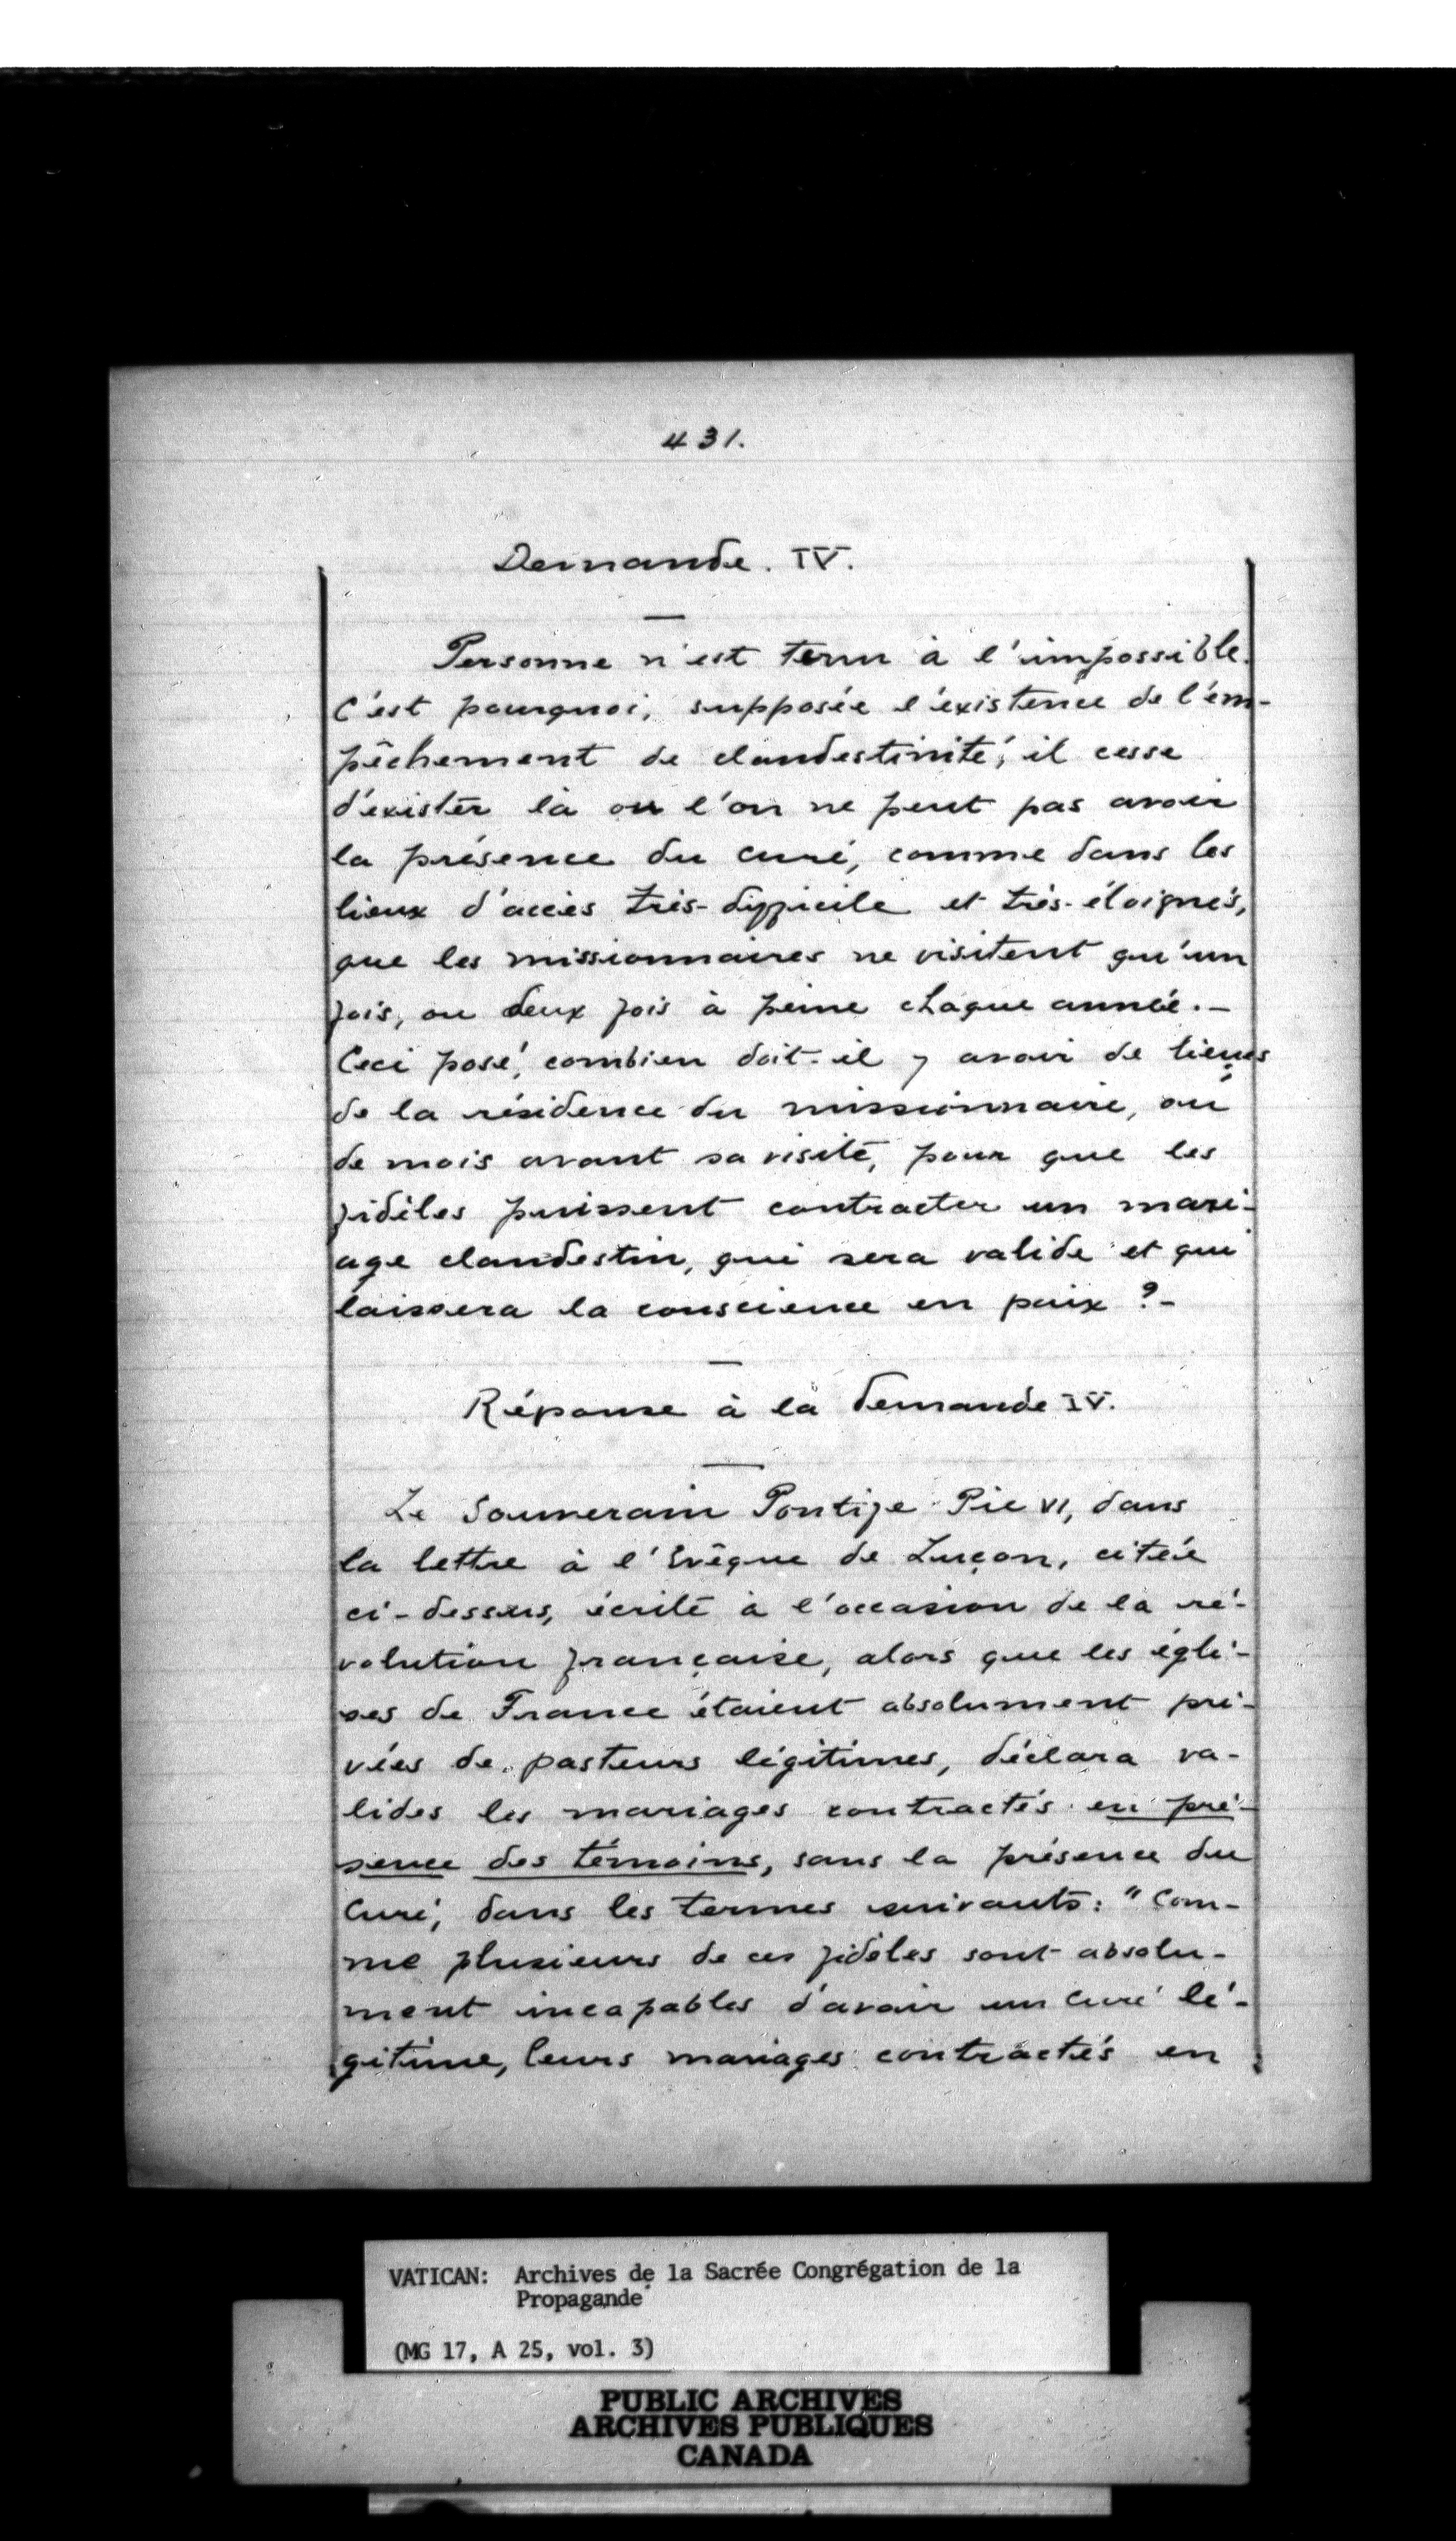 431.
Demande. IV.
Personne n'est tenu à l'impossible.
C'est pourquoi, supposée l'existence de l'em-
pêchement de clandestinité, il cesse
d'exister là où l'on ne peut pas avoir
la présence du curé, comme dans les
lieux d'accès très-difficile et très-éloignés,
que les missionnaires ne visitent qu'un
fois, ou deux fois à peine chaque année.-
Ceci posé, combien doit-il y avoir de lieues
de la résidence du missionnaire, où
de mois avant sa visite, pour que les
fidèles puissent contracter un mari-
age clandestin, qui sera valide et qui
laissera la conscience en paix ?-
Réponse à la demande IV.
Le Souverain Pontife Pie VI, dans
la lettre à l'Evêque de Luçon, citée
ci-dessus, écrite à l'occasion de la ré-
volution française, alors que les égli-
ses de France étaient absolument pri-
vées de pasteurs légitimes, déclara va-
lides les mariages contractés en pré-
sence des témoins, sans la présence du
Curé, dans les termes suivants: "Com-
me plusieurs de ces fidèles sont absolu-
ment incapables d'avoir un curé lé-
gitime, leurs mariages contractés en
VATICAN: Archives de la Sacrée Congrégation de la
Propagande
(MG 17, A 25, vol. 3)
PUBLIC ARCHIVES
ARCHIVES PUBLIQUES
CANADA